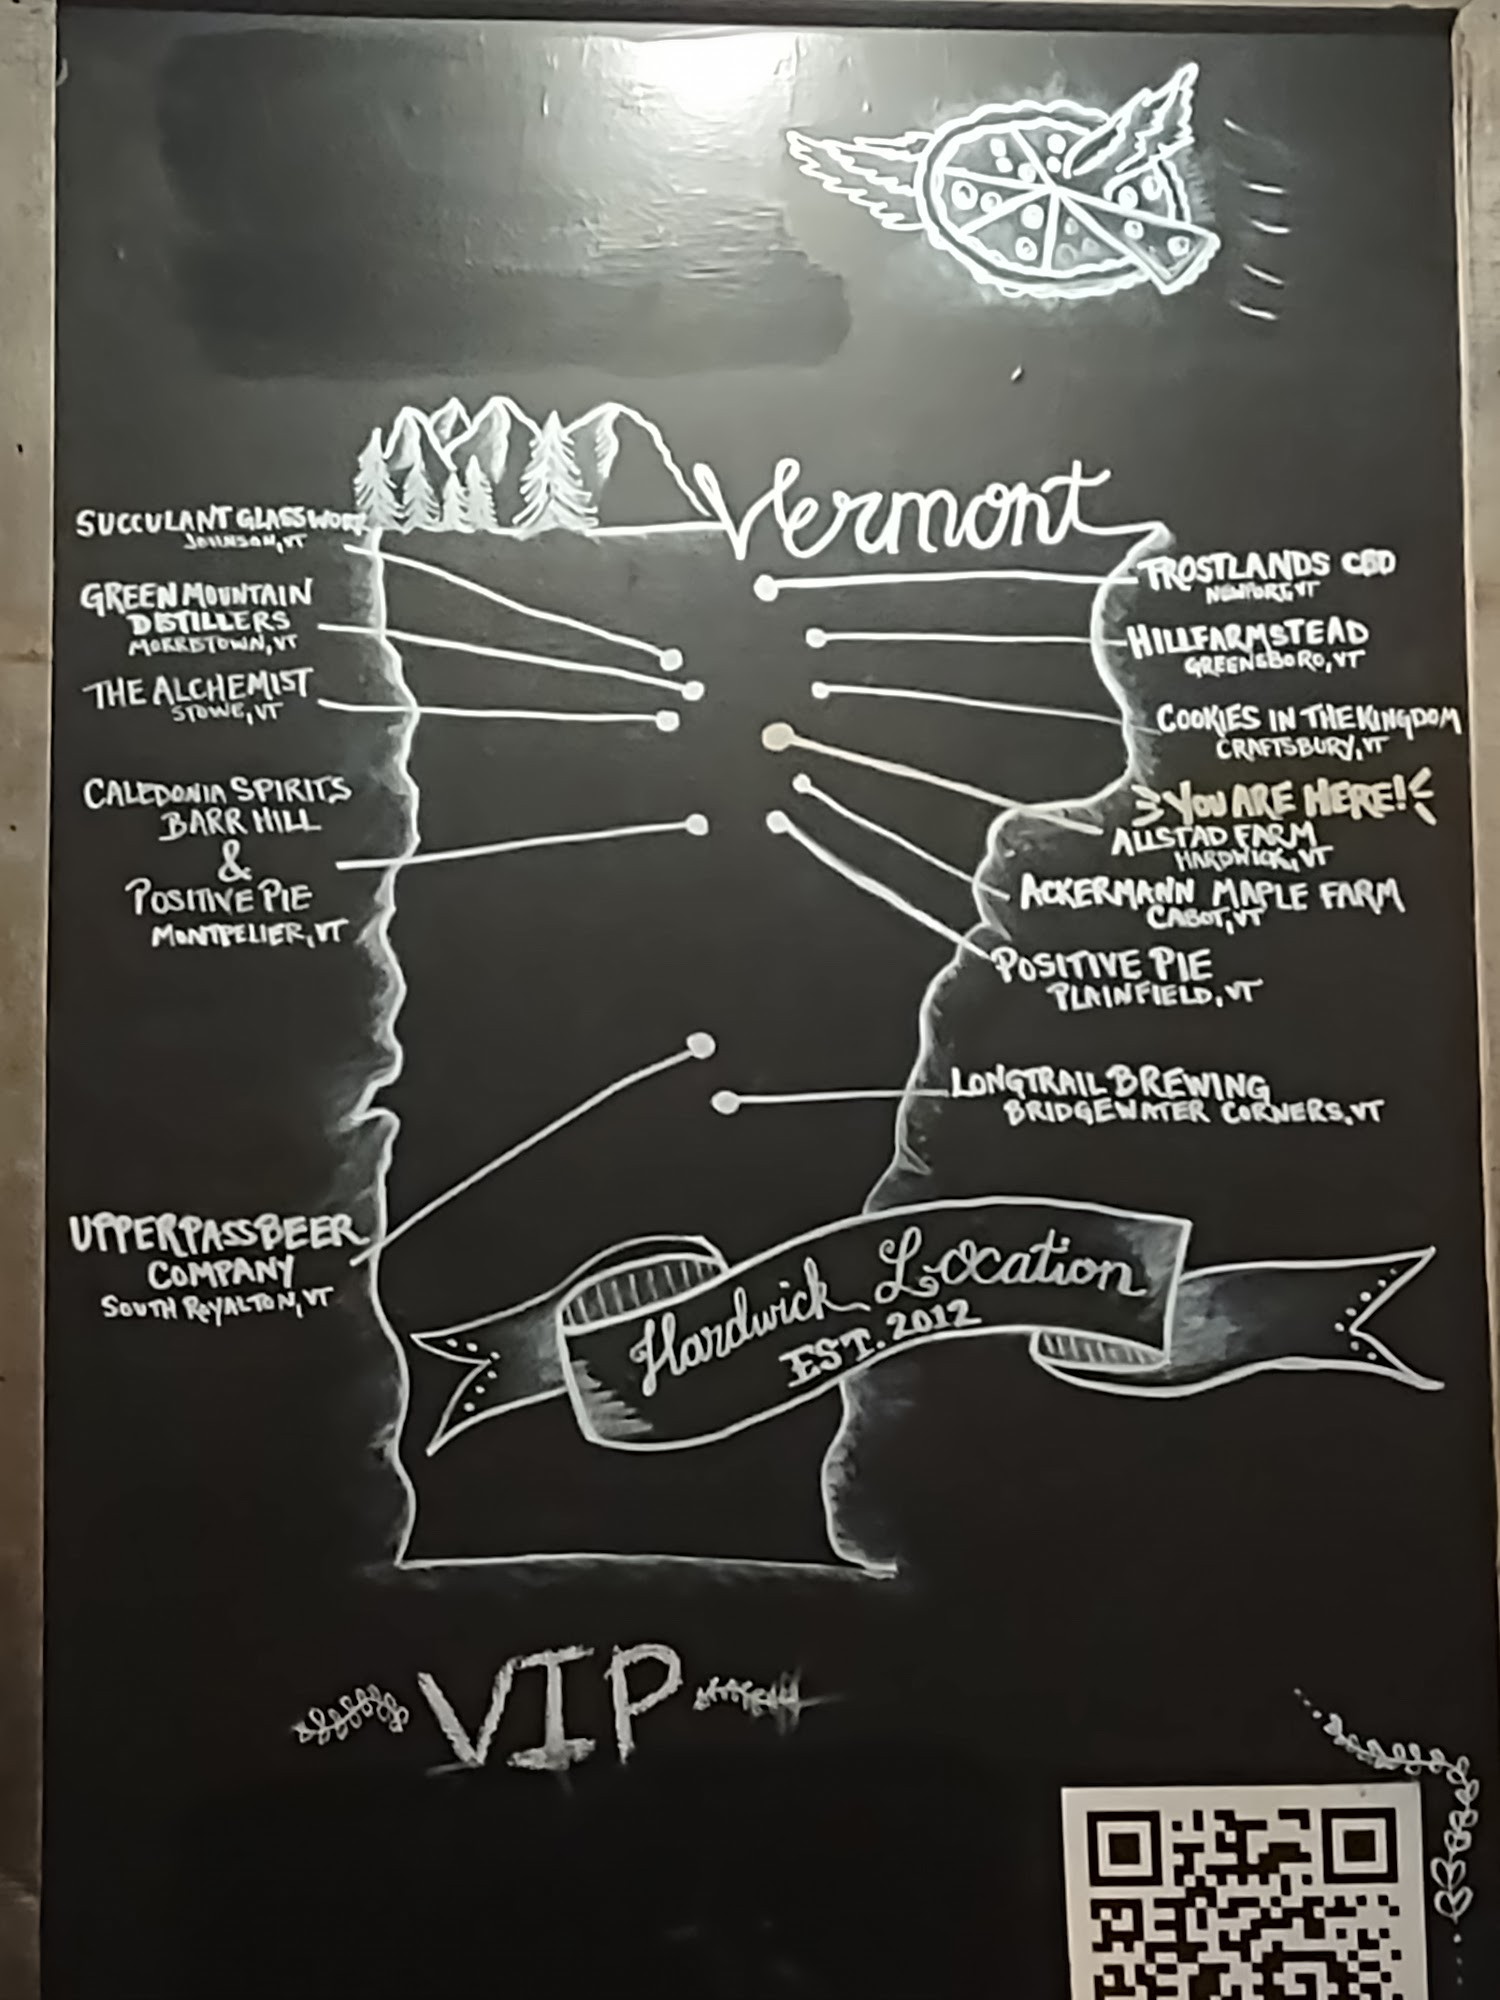 Vermont
SUCCULANT GLASSWORK
JOHNSON, VT
GREEN MOUNTAIN
DISTILLERS
MORRISTOWN, VT
THE ALCHEMIST
STOWE, VT
CALEDONIA SPIRITS
BARR HILL
&
POSITIVE PIE
MONTPELIER, VT
UPPER PASS BEER
COMPANY
SOUTH ROYALTON, VT
FROSTLANDS CBD
NEWPORT, VT
HILLFARMSTEAD
GREENSBORO, VT
COOKIES IN THE KINGDOM
CRAFTSBURY, VT
YOU ARE HERE!
ALLSTAD FARM
HARDWICK, VT
ACKERMANN MAPLE FARM
CABOT, VT
POSITIVE PIE
PLAINFIELD, VT
LONGTRAIL BREWING
BRIDGEWATER CORNERS, VT
Hardwick Location
EST. 2012
VIP